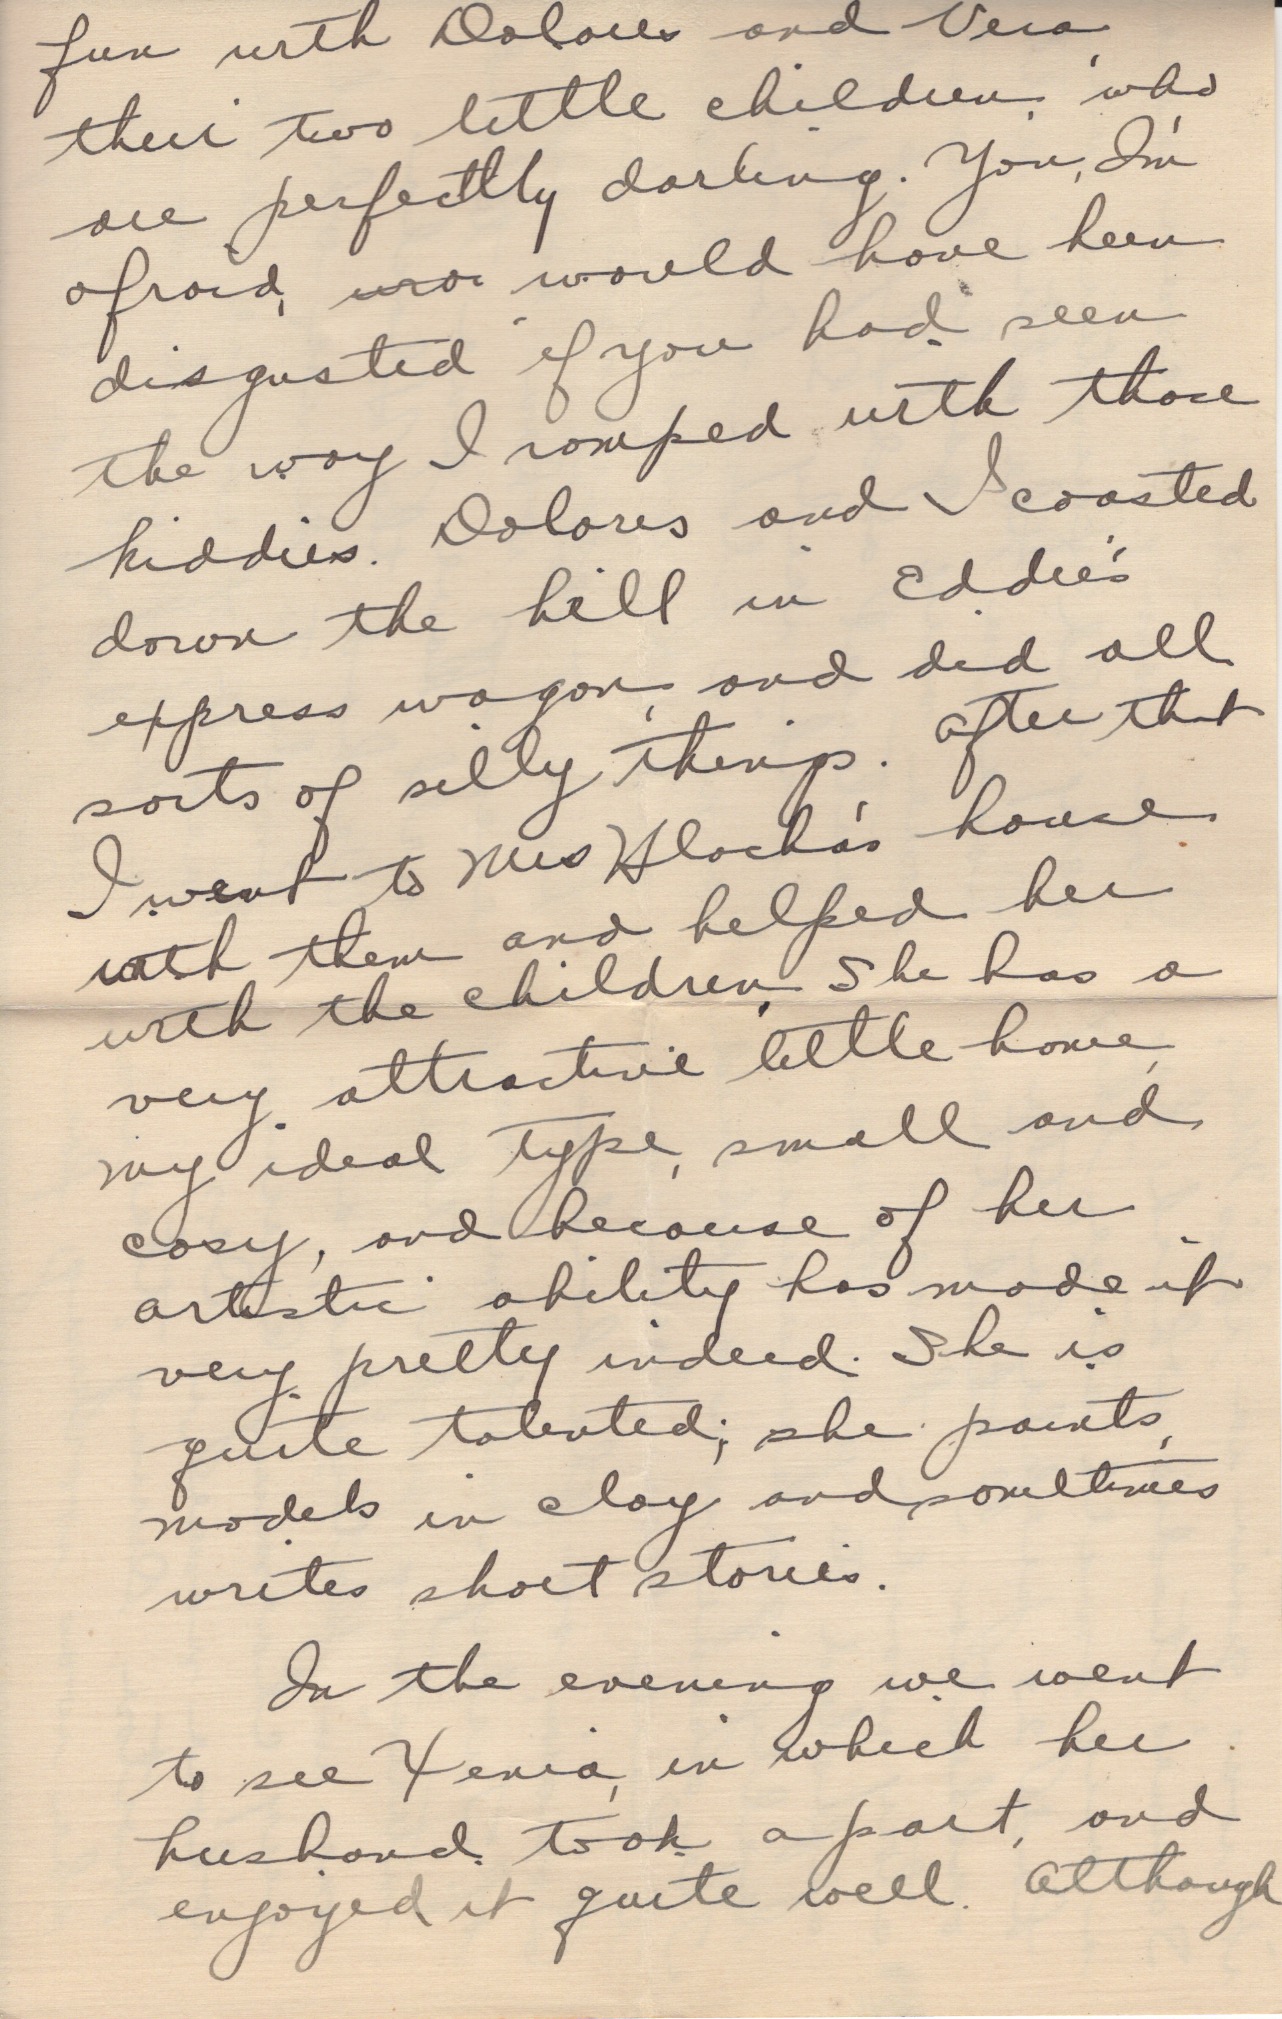 fun with Dolores and Vera
their two little children, who
are perfectly darling. You, I'm
afraid, would have been
disgusted if you had seen
the way I romped with those
kiddies. Dolores and I coasted
down the hill in Eddie's
express wagon, and did all
sorts of silly things. After that
I went to Mrs Hlocha's house
with them and helped her
with the children. She has a
very attractive little home,
my ideal type, small and
cosy, and because of her
artistic ability has made it
very pretty indeed. She is
quite talented; she paints,
models in clay and sometimes
writes short stories.
In the evening we went
to see Xenia, in which her
husband took a part, and
enjoyed it quite well. Although